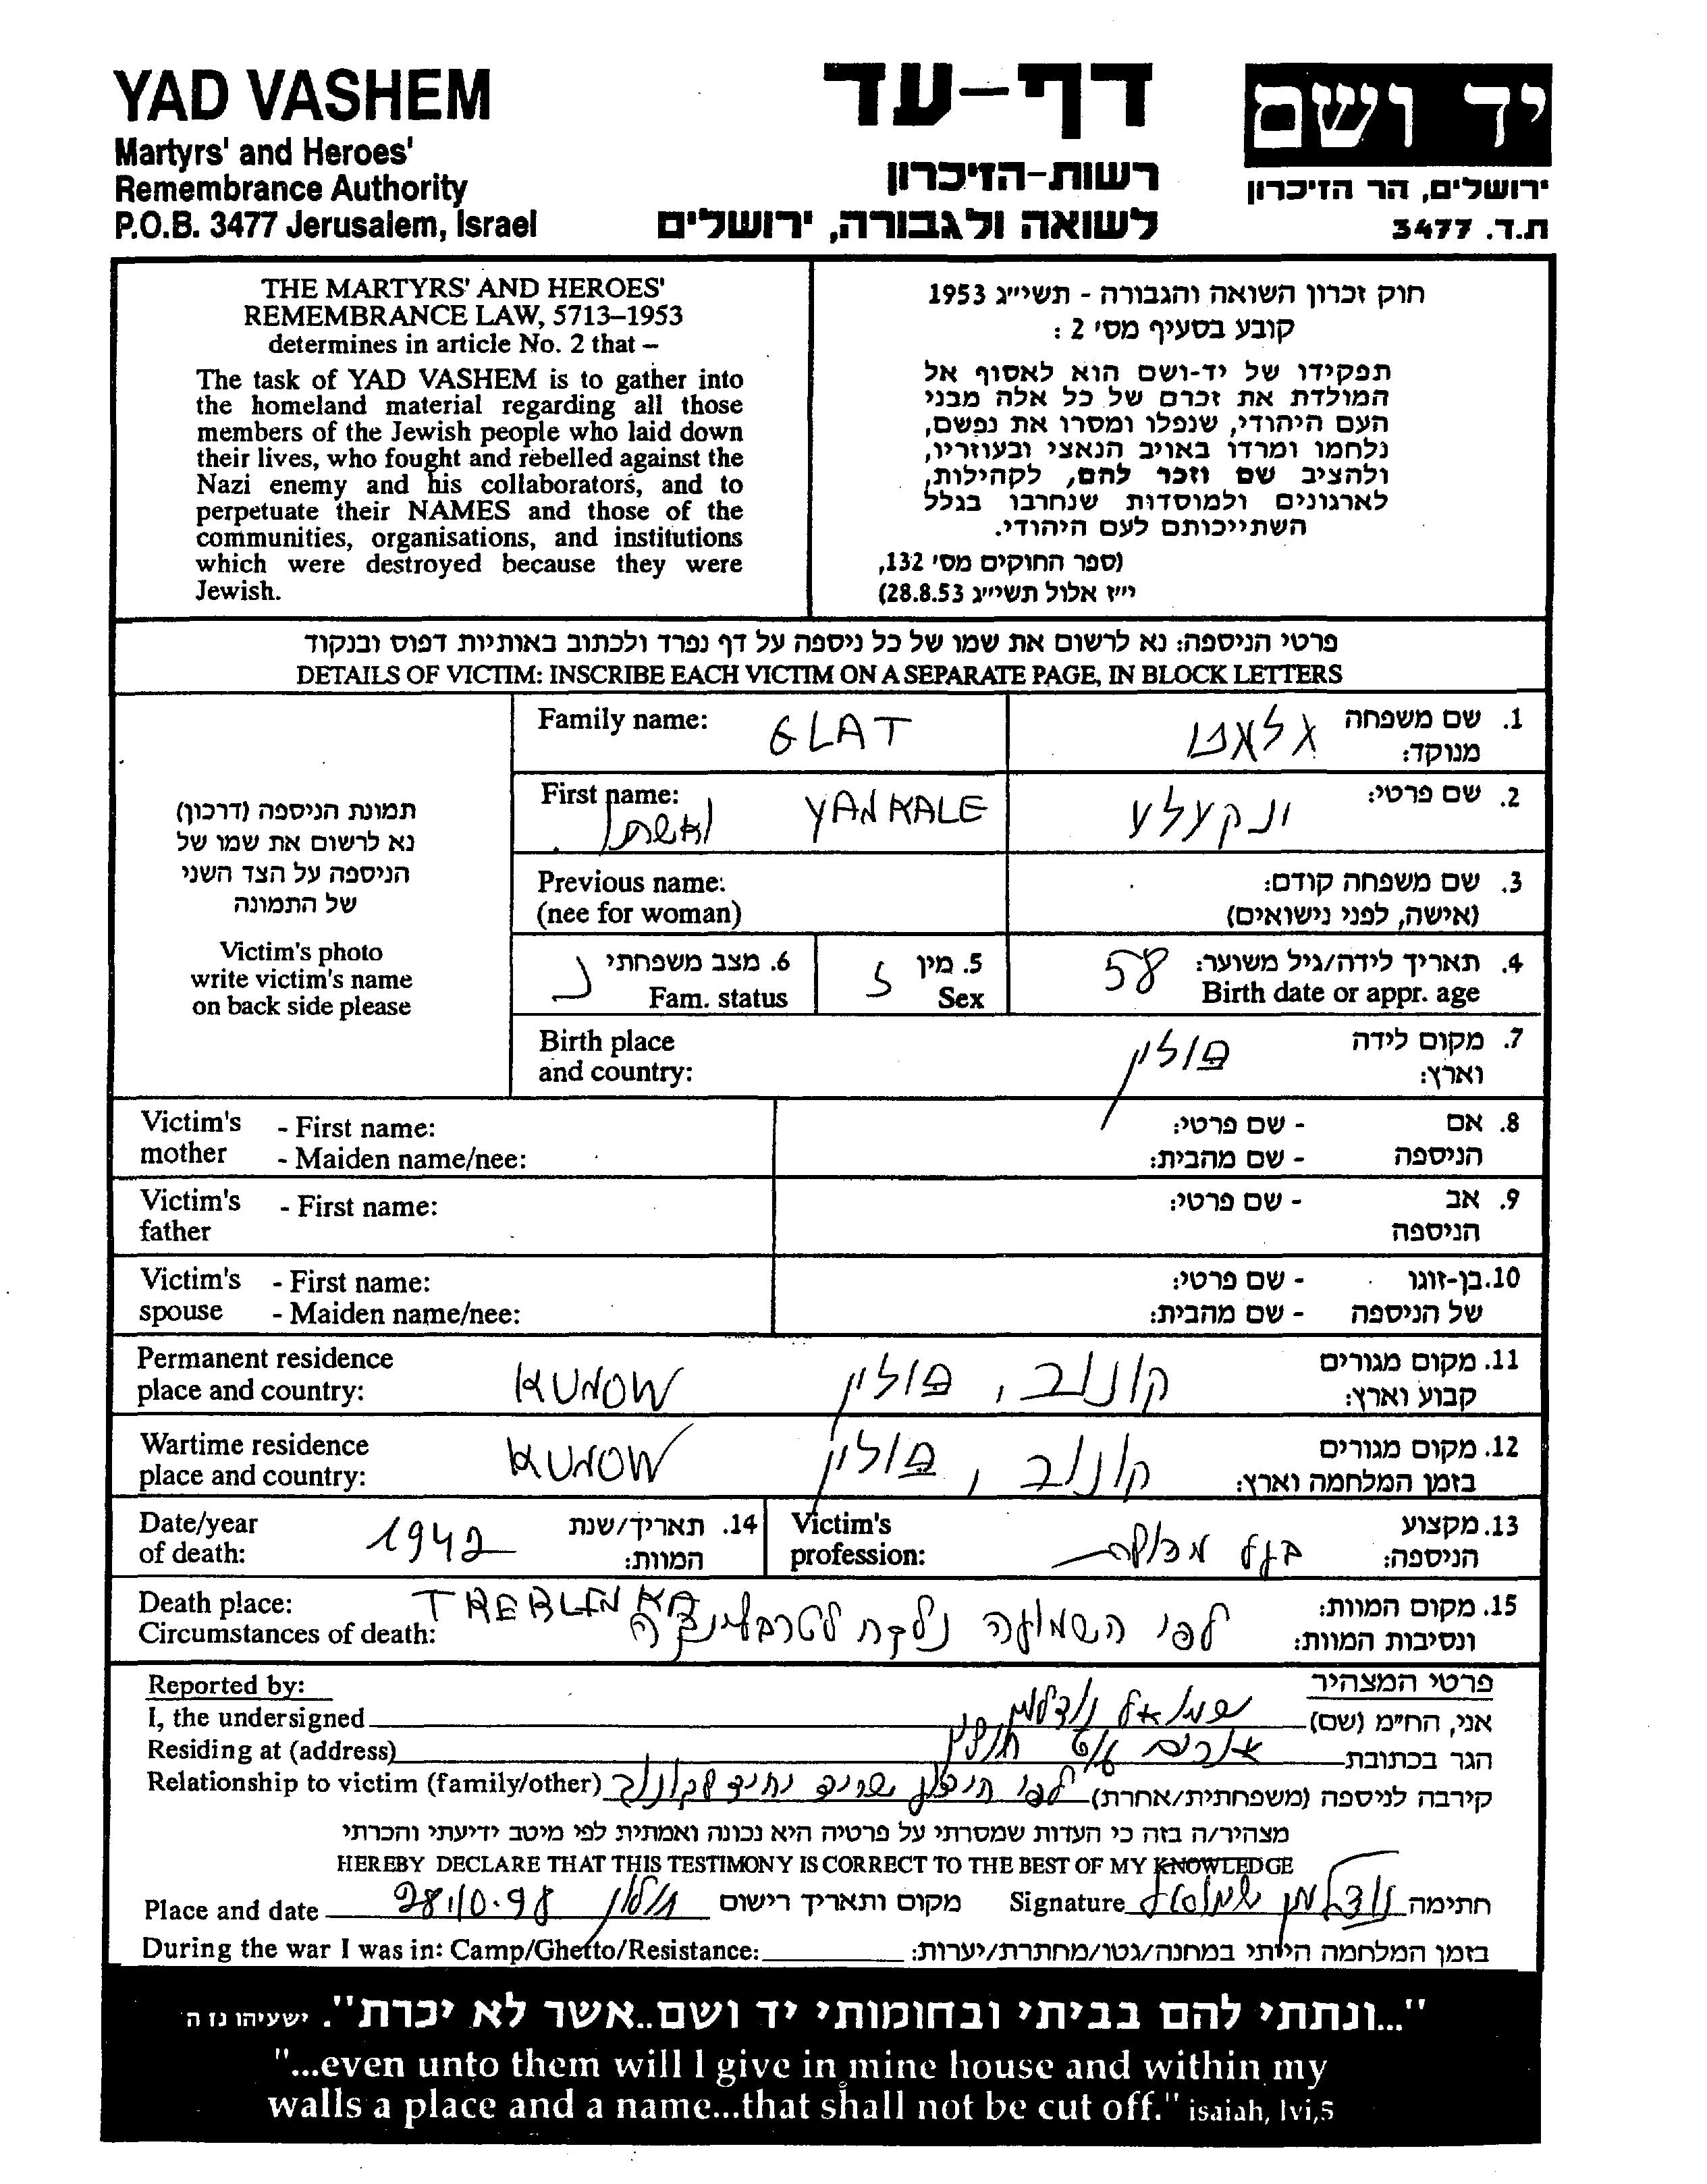 YAD VASHEM
Martyrs' and Heroes'
Remembrance Authority
P.O.B. 3477 Jerusalem, Israel
דף-עד
רשות-הזיכרון
לשואה ולגבורה, ירושלים
יד ושם
ירושלים, הר הזיכרון
ת.ד. 3477
THE MARTYRS' AND HEROES'
REMEMBRANCE LAW, 5713–1953
determines in article No. 2 that –
The task of YAD VASHEM is to gather into
the homeland material regarding all those
members of the Jewish people who laid down
their lives, who fought and rebelled against the
Nazi enemy and his collaborators, and to
perpetuate their NAMES and those of the
communities, organisations, and institutions
which were destroyed because they were
Jewish.
חוק זכרון השואה והגבורה - תשי״ג 1953
קובע בסעיף מס׳ 2 :
תפקידו של יד-ושם הוא לאסוף אל
המולדת את זכרם של כל אלה מבני
העם היהודי, שנפלו ומסרו את נפשם,
נלחמו ומרדו באויב הנאצי ובעוזריו,
ולהציב שם וזכר להם, לקהילות,
לארגונים ולמוסדות שנחרבו בגלל
השתייכותם לעם היהודי.
(ספר החוקים מס׳ 132,
י״ז אלול תשי״ג 28.8.53)
פרטי הניספה: נא לרשום את שמו של כל ניספה על דף נפרד ולכתוב באותיות דפוס ובנקוד
DETAILS OF VICTIM: INSCRIBE EACH VICTIM ON A SEPARATE PAGE, IN BLOCK LETTERS
תמונת הניספה (דרכון)
נא לרשום את שמו של
הניספה על הצד השני
של התמונה
Victim's photo
write victim's name
on back side please
Family name: GLAT
1. שם משפחה גלאט
מנוקד:
First name: YANKALE
ואשתו
2. שם פרטי: ינקעלע
Previous name:
(nee for woman)
3. שם משפחה קודם:
(אישה, לפני נישואים)
6. מצב משפחתי נ
Fam. status
5. מין ז
Sex
4. תאריך לידה/גיל משוער: 58
Birth date or appr. age
Birth place
and country:
7. מקום לידה פולין
וארץ:
Victim's - First name:
mother - Maiden name/nee:
8. אם - שם פרטי:
הניספה - שם מהבית:
Victim's - First name:
father
9. אב - שם פרטי:
הניספה
Victim's - First name:
spouse - Maiden name/nee:
10. בן-זוגו - שם פרטי:
של הניספה - שם מהבית:
Permanent residence
place and country: KUNOW
11. מקום מגורים קונוב, פולין
קבוע וארץ:
Wartime residence
place and country: KUNOW
12. מקום מגורים קונוב, פולין
בזמן המלחמה וארץ:
Date/year
of death: 1942
14. תאריך/שנת
המוות:
Victim's
profession:
13. מקצוע
הניספה: בעל מכולת
Death place: TREBLINKA
Circumstances of death:
15. מקום המוות:
ונסיבות המוות: לפי השמועה נלקח לטרבלינקה
Reported by:
פרטי המצהיר
I, the undersigned
אני, הח״מ (שם) שמואל
Residing at (address)
הגר בכתובת
Relationship to victim (family/other)
קירבה לניספה (משפחתית/אחרת) לפי שריד יחיד מקונוב
מצהיר/ה בזה כי העדות שמסרתי על פרטיה היא נכונה ואמתית לפי מיטב ידיעתי והכרתי
HEREBY DECLARE THAT THIS TESTIMONY IS CORRECT TO THE BEST OF MY KNOWLEDGE
Place and date 28.10.98 חולון מקום ותאריך רישום
Signature שמואל חתימה
During the war I was in: Camp/Ghetto/Resistance:
בזמן המלחמה הייתי במחנה/גטו/מחתרת/יערות:
"...ונתתי להם בביתי ובחומותי יד ושם..אשר לא יכרת". ישעיהו נז ה
"...even unto them will I give in mine house and within my
walls a place and a name...that shall not be cut off." isaiah, lvi,5